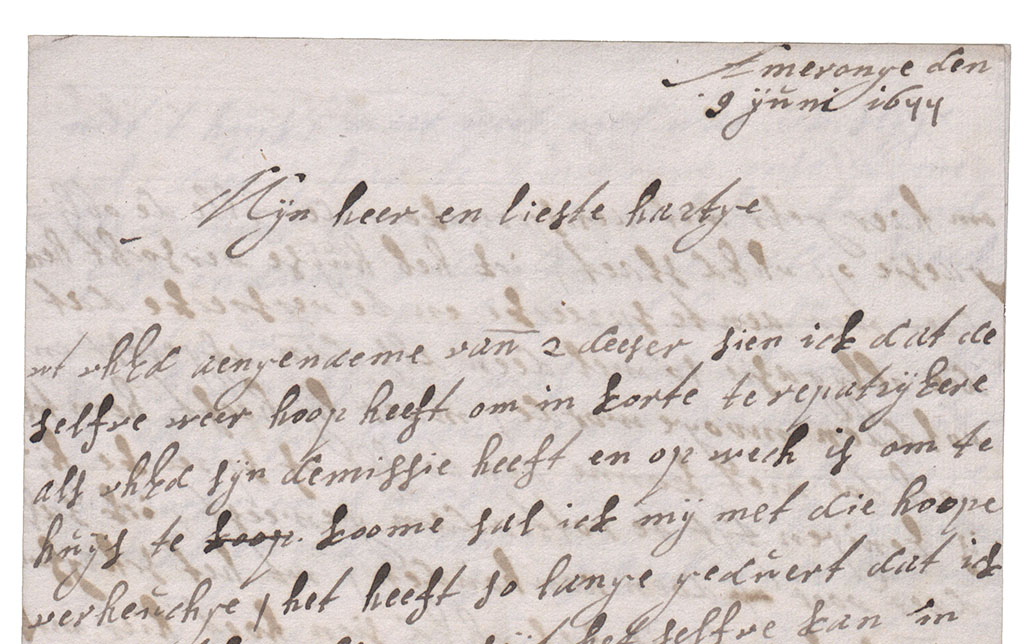 Ameronge den
9 Juni 1677
Mijn heer en lieste hartge
ut uhEd aengename van 2 deeser sien ick dat de
selfve weer hoop heeft om in korte te repatrijeere
als uhEd sijn demissie heeft en op wech is om te
huijs te koop. koome sal ick mij met die hoope
verheuchge / het heeft so lange geduert dat ick
het selfve kan in